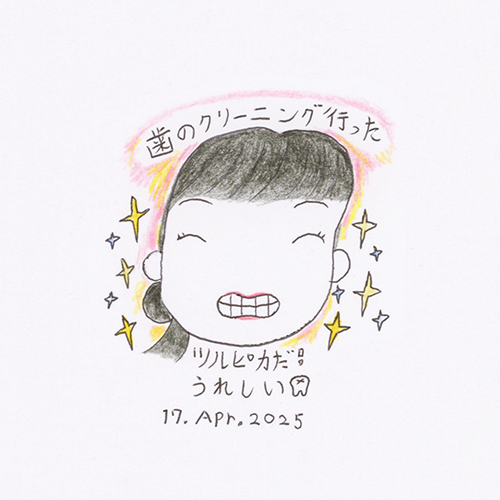 歯のクリーニング行った
ツルピカだ!!
うれしい
17. Apr. 2025